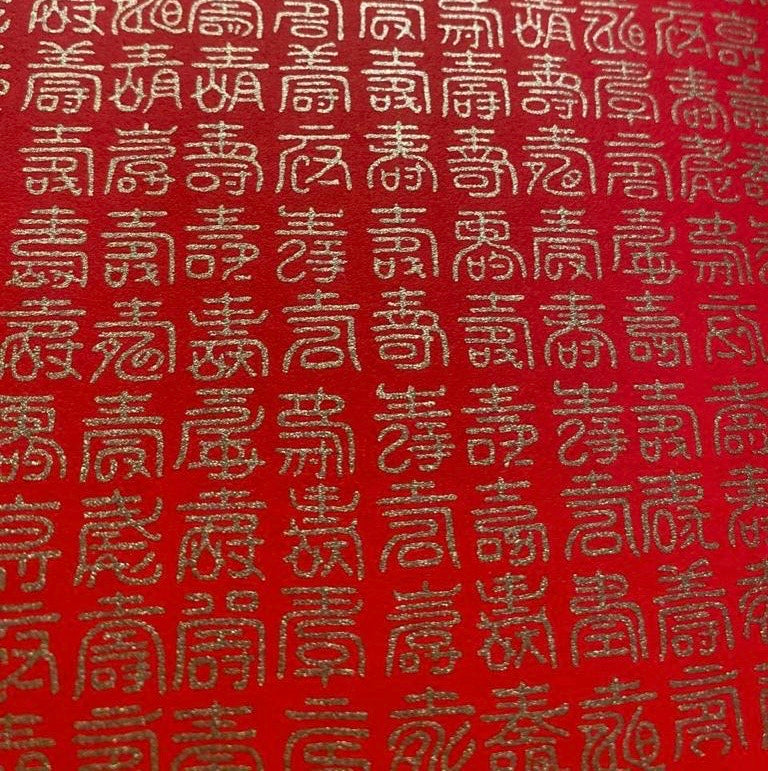 壽壽壽壽壽壽壽壽壽壽
壽壽壽壽壽壽壽壽壽壽
壽壽壽壽壽壽壽壽壽壽
壽壽壽壽壽壽壽壽壽
壽壽壽壽壽壽壽壽壽
壽壽壽壽壽壽壽壽壽
壽壽壽壽壽壽壽壽壽
壽壽壽壽壽壽壽壽
壽壽壽壽壽壽壽壽